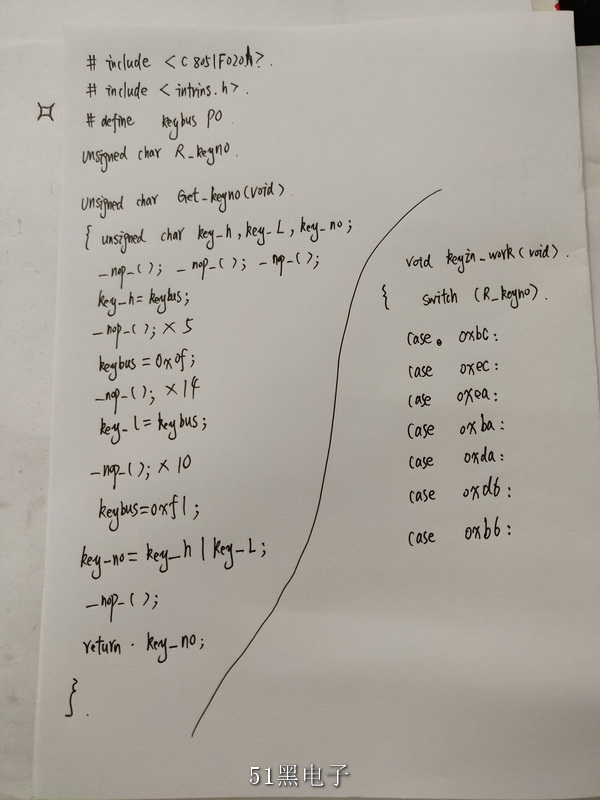 # include <C8051F020h>.
# include <intrins.h>.
# define keybus P0.
unsigned char R_keyno.
unsigned char Get_keyno(void)
{ unsigned char key_h, key_L, key_no;
_nop_(); _nop_(); _nop_();
key_h=keybus;
_nop_(); × 5
keybus=0x0f;
_nop_(); × 14
key_l=keybus;
_nop_(); × 10
keybus=0xf1;
key_no=key_h | key_L;
_nop_();
return . key_no;
}.
void keyin_work(void).
{ switch (R_keyno).
case. 0xbc:
case 0xec:
case 0xea:
case 0xba:
case 0xda:
case 0xd6:
case 0xb6:
51黑电子